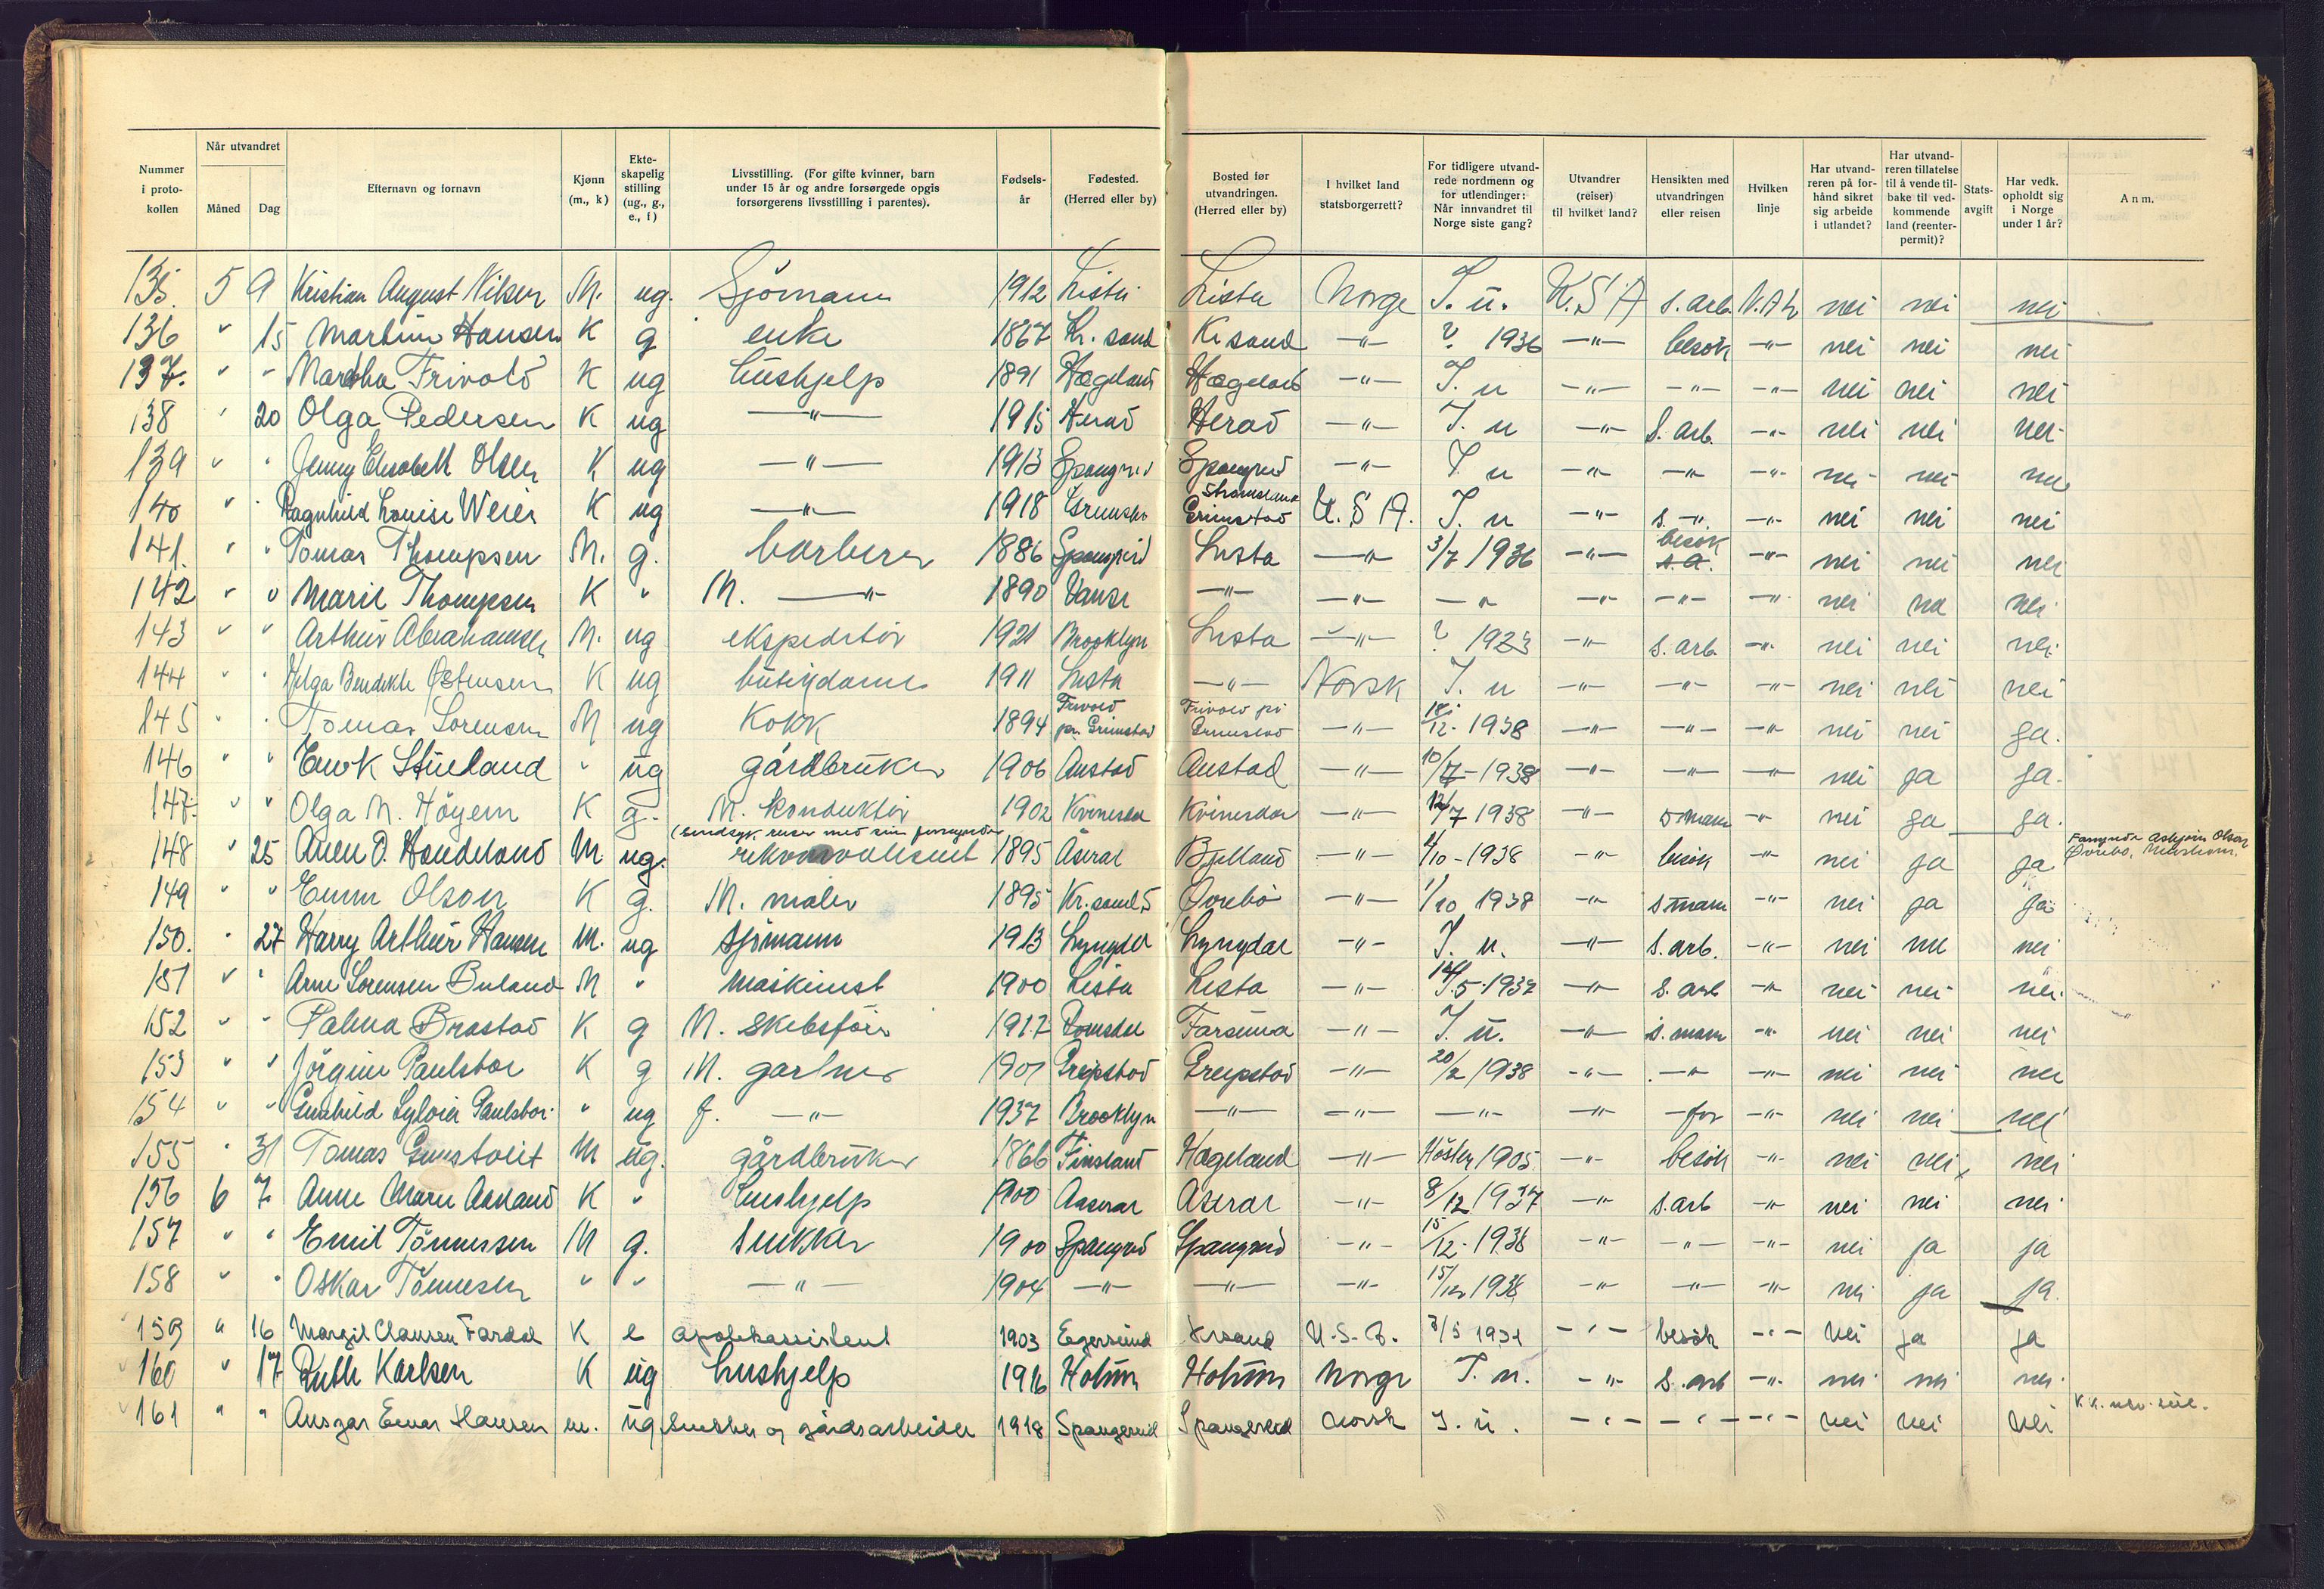 Nummer i protokollen | Når utvandret Måned | Dag | Efternavn og fornavn | Kjønn (m., k) | Ekteskapelig stilling (ug., g., e., f) | Livsstilling. (For gifte kvinner, barn under 15 år og andre forsørgede opgis forsørgerens livsstilling i parentes). | Fødselsår | Fødested. (Herred eller by) | Bosted før utvandringen. (Herred eller by) | I hvilket land statsborgerrett? | For tidligere utvandrede nordmenn og for utlendinger: Når innvandret til Norge siste gang? | Utvandrer (reiser) til hvilket land? | Hensikten med utvandringen eller reisen | Hvilken linje | Har utvandreren på forhånd sikret sig arbeide i utlandet? | Har utvandreren tillatelse til å vende tilbake til vedkommende land (reenterpermit)? | Statsavgift | Har vedk. opholdt sig i Norge under 1 år? | Anm.
135. 5 9 Kristian August Nilsen M. ug. Sjömann 1912 Lista Lista Norge I. u. U.S.A s. arb. N.A.L nei nei nei
136 " 15 Hansen K g enke Kr. sand Kr sand -"- ? 1936 -"- besök -"- nei nei nei
137. " " Martha Frivold K ug hushjelp 1891 Hægeland Hægeland -"- I. u -"- -"- -"- nei nei nei
138 " 20 Olga Pedersen K ug -"- 1915 Herad Herad -"- I. u -"- s. arb. -"- nei nei nei
139 " " Jenny Elisabeth Olsen K ug -"- 1913 Spangreid Spangreid -"- I. u -"- -"- -"- nei nei nei
140 " " Ragnhild Louise Weier K ug -"- 1918 Grimstad Grimstad U.S.A. I. u -"- s. -"- -"- nei nei nei
141. " " Tomas Thompsen M. g. barberer 1886 Spangreid Lista -"- 3/7 1936 -"- besök -"- nei nei nei
142 " " Marie Thompsen K " M. -"- 1890 Vanse -"- -"- -"- -"- -"- -"- nei nei nei
143 " " Arthur Abrahamsen M. ug ekspeditör 1921 Brooklyn Lista -"- ? 1923 -"- s. arb. -"- nei nei nei
144 " " Helga Bendikte Östensen K ug butikdame 1911 Lista -"- Norsk I. u -"- -"- -"- nei nei nei
145 " " Tomas Sorensen M ug Kokk 1894 Frivold pr. Grimstad Frivold pr Grimstad -"- 18/12 - 1938 -"- -"- -"- nei nei ja.
146 " " " ug gårdbruker 1906 Austad Austad -"- 10/7 - 1938 -"- -"- -"- nei ja ja.
147. " " Olga M. Höyem K g. M. konduktör 1902 Kvinesdal Kvinesdal -"- 12/7 1938 -"- s mann -"- nei ja ja.
148 " 25 O. Handeland M ug. (sindsyk reiser med sin formynder rekonvalesent 1895 Åseral Bjelland -"- 1/10 - 1938 -"- besök -"- nei ja ja Asbjörn Olson Övrebö,
149 " " Emm Olson K g. M. maler 1895 Kr. sand S Övrebö -"- 1/10 1938 -"- s mann -"- nei ja ja
150. " 27 Harry Arthur Hansen M. ug sjömann 1913 Lyngdal Lyngdal -"- I. u. -"- s. arb. -"- nei nei nei
151 " " Arne Sorensen Buland M " maskinist 1900 Lista Lista -"- -"- s. arb -"- nei nei nei
152 " " Palma Brastad K g M. skibsförer 1917 Farsund -"- I. u. -"- s. mann -"- nei nei nei
153 " " Jörgine Paulsbo K g M. gartner 1901 Greipstad Greipstad -"- 20/2 1938 -"- -"- -"- nei nei nei
154 " " Gunhild Sylvia Paulsbo " ug f. -"- 1937 Brooklyn -"- -"- -"- -"- -far -"- nei nei nei
155 " 31 Tomas M ug. gårdbruker 1866 Finsland Hægeland -"- Hösten 1905 -"- besök -"- nei nei nei
156 6 7 Anne Marie Aasland K " hushjelp 1900 Aaseral Aseral -"- 8/12 1937 -"- s. arb -"- nei nei nei
157 " " Emil Tönnessen M g. snekker 1900 Spangreid Spangreid -"- 15/12 - 1938 -"- -"- -"- nei ja ja
158 " " Oskar Tönnesen " " -"- 1904 -"- -"- -"- 15/12 1938 -"- -"- -"- nei ja ja.
159 " 16 Margit Clausen Fardal K e apotekassistent 1903 Egersund Krsand U.S.A. 3/5 1931 -"- besök -"- nei ja ja
160 " 17 Ruth Karlsen K ug hushjelp 1916 Holum Holum Norge I. u. -"- s. arb -"- nei nei nei
161 " " Ansgar Einar Hansen m. ug snekker og gårdsarbeider 1918 Spangereid Spangereid norsk I. u. -"- -"- -"- nei nei nei